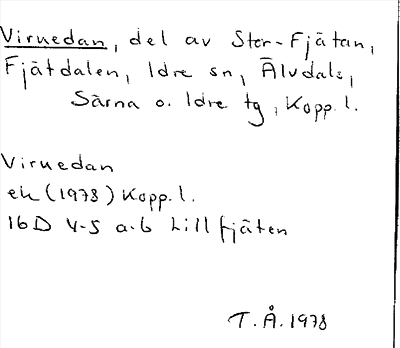 Virnedan, del av Stor-Fjätan,
Fjätdalen, Idre sn, Älvdals,
Särna o. Idre tg, Kopp. l.
Virnedan
ek (1978) Kopp. l.
16D 4-5 a-b Lillfjäten
T. Å. 1978